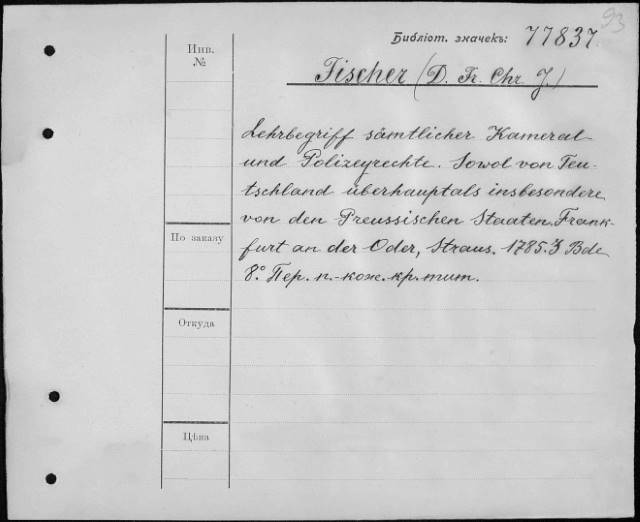 93
Библіот. значекъ: 77837.
Инв.
№
Fischer (D. Fr. Chr. J.)
Lehrbegriff sämtlicher Kameral-
und Polizeyrechte. Sowol von Teu-
tschland überhaupt als insbesondere
von den Preussischen Staaten. Frank-
furt an der Oder, Straus. 1785. 3 Bde
8º. Пер. п.-кож. кр. тит.
По заказу
Откуда
Цѣна